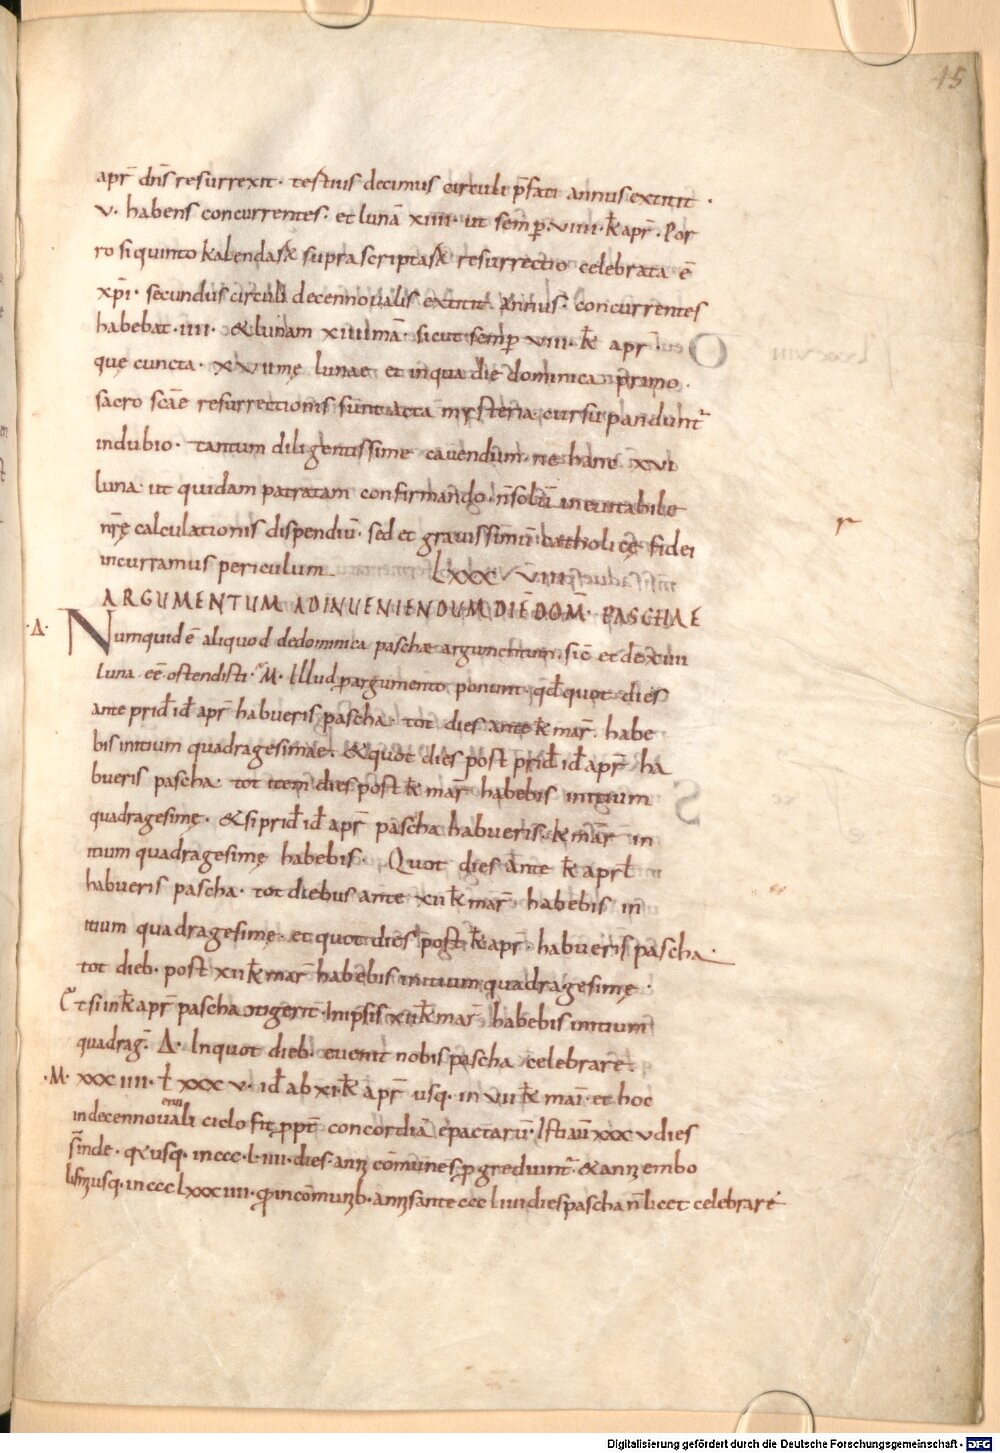 15
apr̄ dn̄s resurrexit · tertius decimus circuli p̄fati annus extitit ·
v · habens concurrentes · et lunā xiiii · ut semp · viiii · k̄ apr̄ · Por
ro si quinto kalendas supra scriptas resurrectio celebrata ē
xp̄i · secundus circuli decennovalis extitit annus · concurrentes
habebat · iiii · & lunam xiiii mā · sicut semp xiii · k̄ apr̄
quę cuncta · xxvii mę lunae et in qua die dominica primo ·
sacro scāe resurrectionis sunt acta mysteria cursu pandunt᷑
indubio · tantum diligentissime cavendum · ne hanc xvi
luna ut quidam patratam confirmando · n̄ solū inevitabile
nr̄ę calculationis dispendiū · sed et gravissimū catholicę fidei
incurramus periculum
Lxxx · viiii
ARGUMENTUM AD INUENIENDUM DIĒ DOM̄ · PASCHAE
· Δ · Numquid ē aliquod de dominica paschae argumentum · sic̄ et de xiiii
luna eē ostendisti · M · Illud p argumento ponunt · qd̄ quot dies
ante prid̄ id̄ apr̄ habueris pascha · tot dies ante k̄ mar̄ · habe
bis initium quadragesimae · & quot dies post prid̄ id̄ apr̄ ha
bueris pascha · tot item dies post k̄ mar̄ habebis initium
quadragesimę · & si prid̄ id̄ apr̄ pascha habueris · k̄ mar̄ in
itium quadragesimę habebis · Quot dies ante k̄ aprl̄
habueris pascha · tot diebus ante xii k̄ mar̄ habebis in
itium quadragesimę · et quot dies post k̄ apr̄ · habueris pascha ·
tot dieb · post xii k̄ mar̄ habebis initium quadragesimę ·
Et si in k̄ apr̄ pascha ɔtigerit · In ipsis xii k̄ mar̄ habebis initium
quadraḡ · Δ · In quot dieb · evenit nobis pascha celebrare ·
· M · xxxiiii · ł xxxv · id̄ ab xi · k̄ apr̄ usq · in vii k̄ mai · et hoc
enn
in decennovali ciclo fit ppt̄ concordiā epactarū · Isti aū xxxv dies
inde · & usq · in ccc · l · iiii · dies · anni cōmunes p grediunt᷑ · & anni embo
lismi usq · in ccc lxxxiiii · q in cōmunib · annis ante ccc liiii dies pascha n̄ licet celebrare
Digitalisierung gefördert durch die Deutsche Forschungsgemeinschaft - DFG